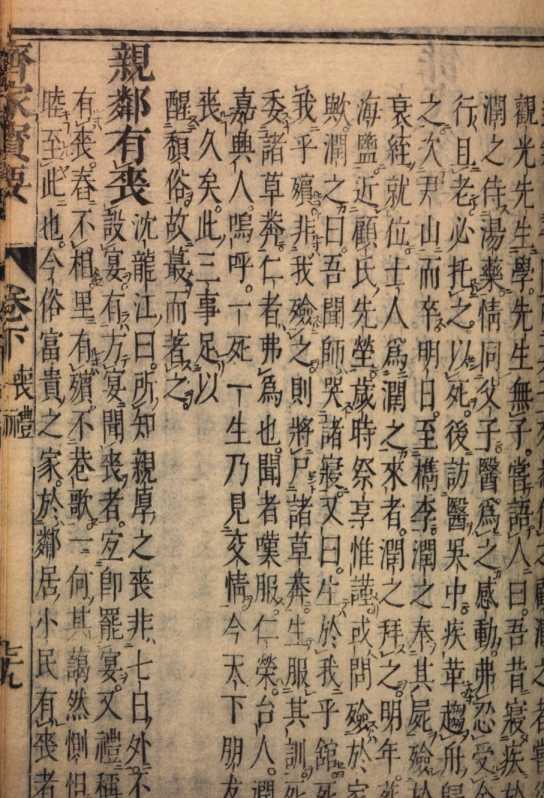 觀光先生學先生無子嘗語人曰吾昔寢疾於
潤之侍湯藥情同父子醫爲之感動弗忍受
行且老必托之以死後訪醫吳中疾革趨舟歸
之次尹山而卒明日至檇李潤之奉其屍殮於
衰絰就位士人爲潤之來者潤之拜之明年
海鹽近顧氏先塋歲時祭享惟謹或問殮於家
歟潤之曰吾聞師哭諸寢又曰生於我乎館死
我乎殯非我殮之則將尸諸草莽生服其訓死
委諸草莽仁者弗爲也聞者嘆服仁榮台人潤
嘉興人嗚呼一死一生乃見交情今天下朋友
喪久矣此三事足以
醒頽俗故蕞而著之
親鄰有喪 沈龍江曰所知親厚之喪非七日外不
設宴有方宴聞喪者宜卽罷宴又禮稱
有喪舂不相里有殯不巷歌一何其藹然惻怛
睦至此也今俗富貴之家於鄰居小民有喪者
齊家寶要 卷下 喪禮